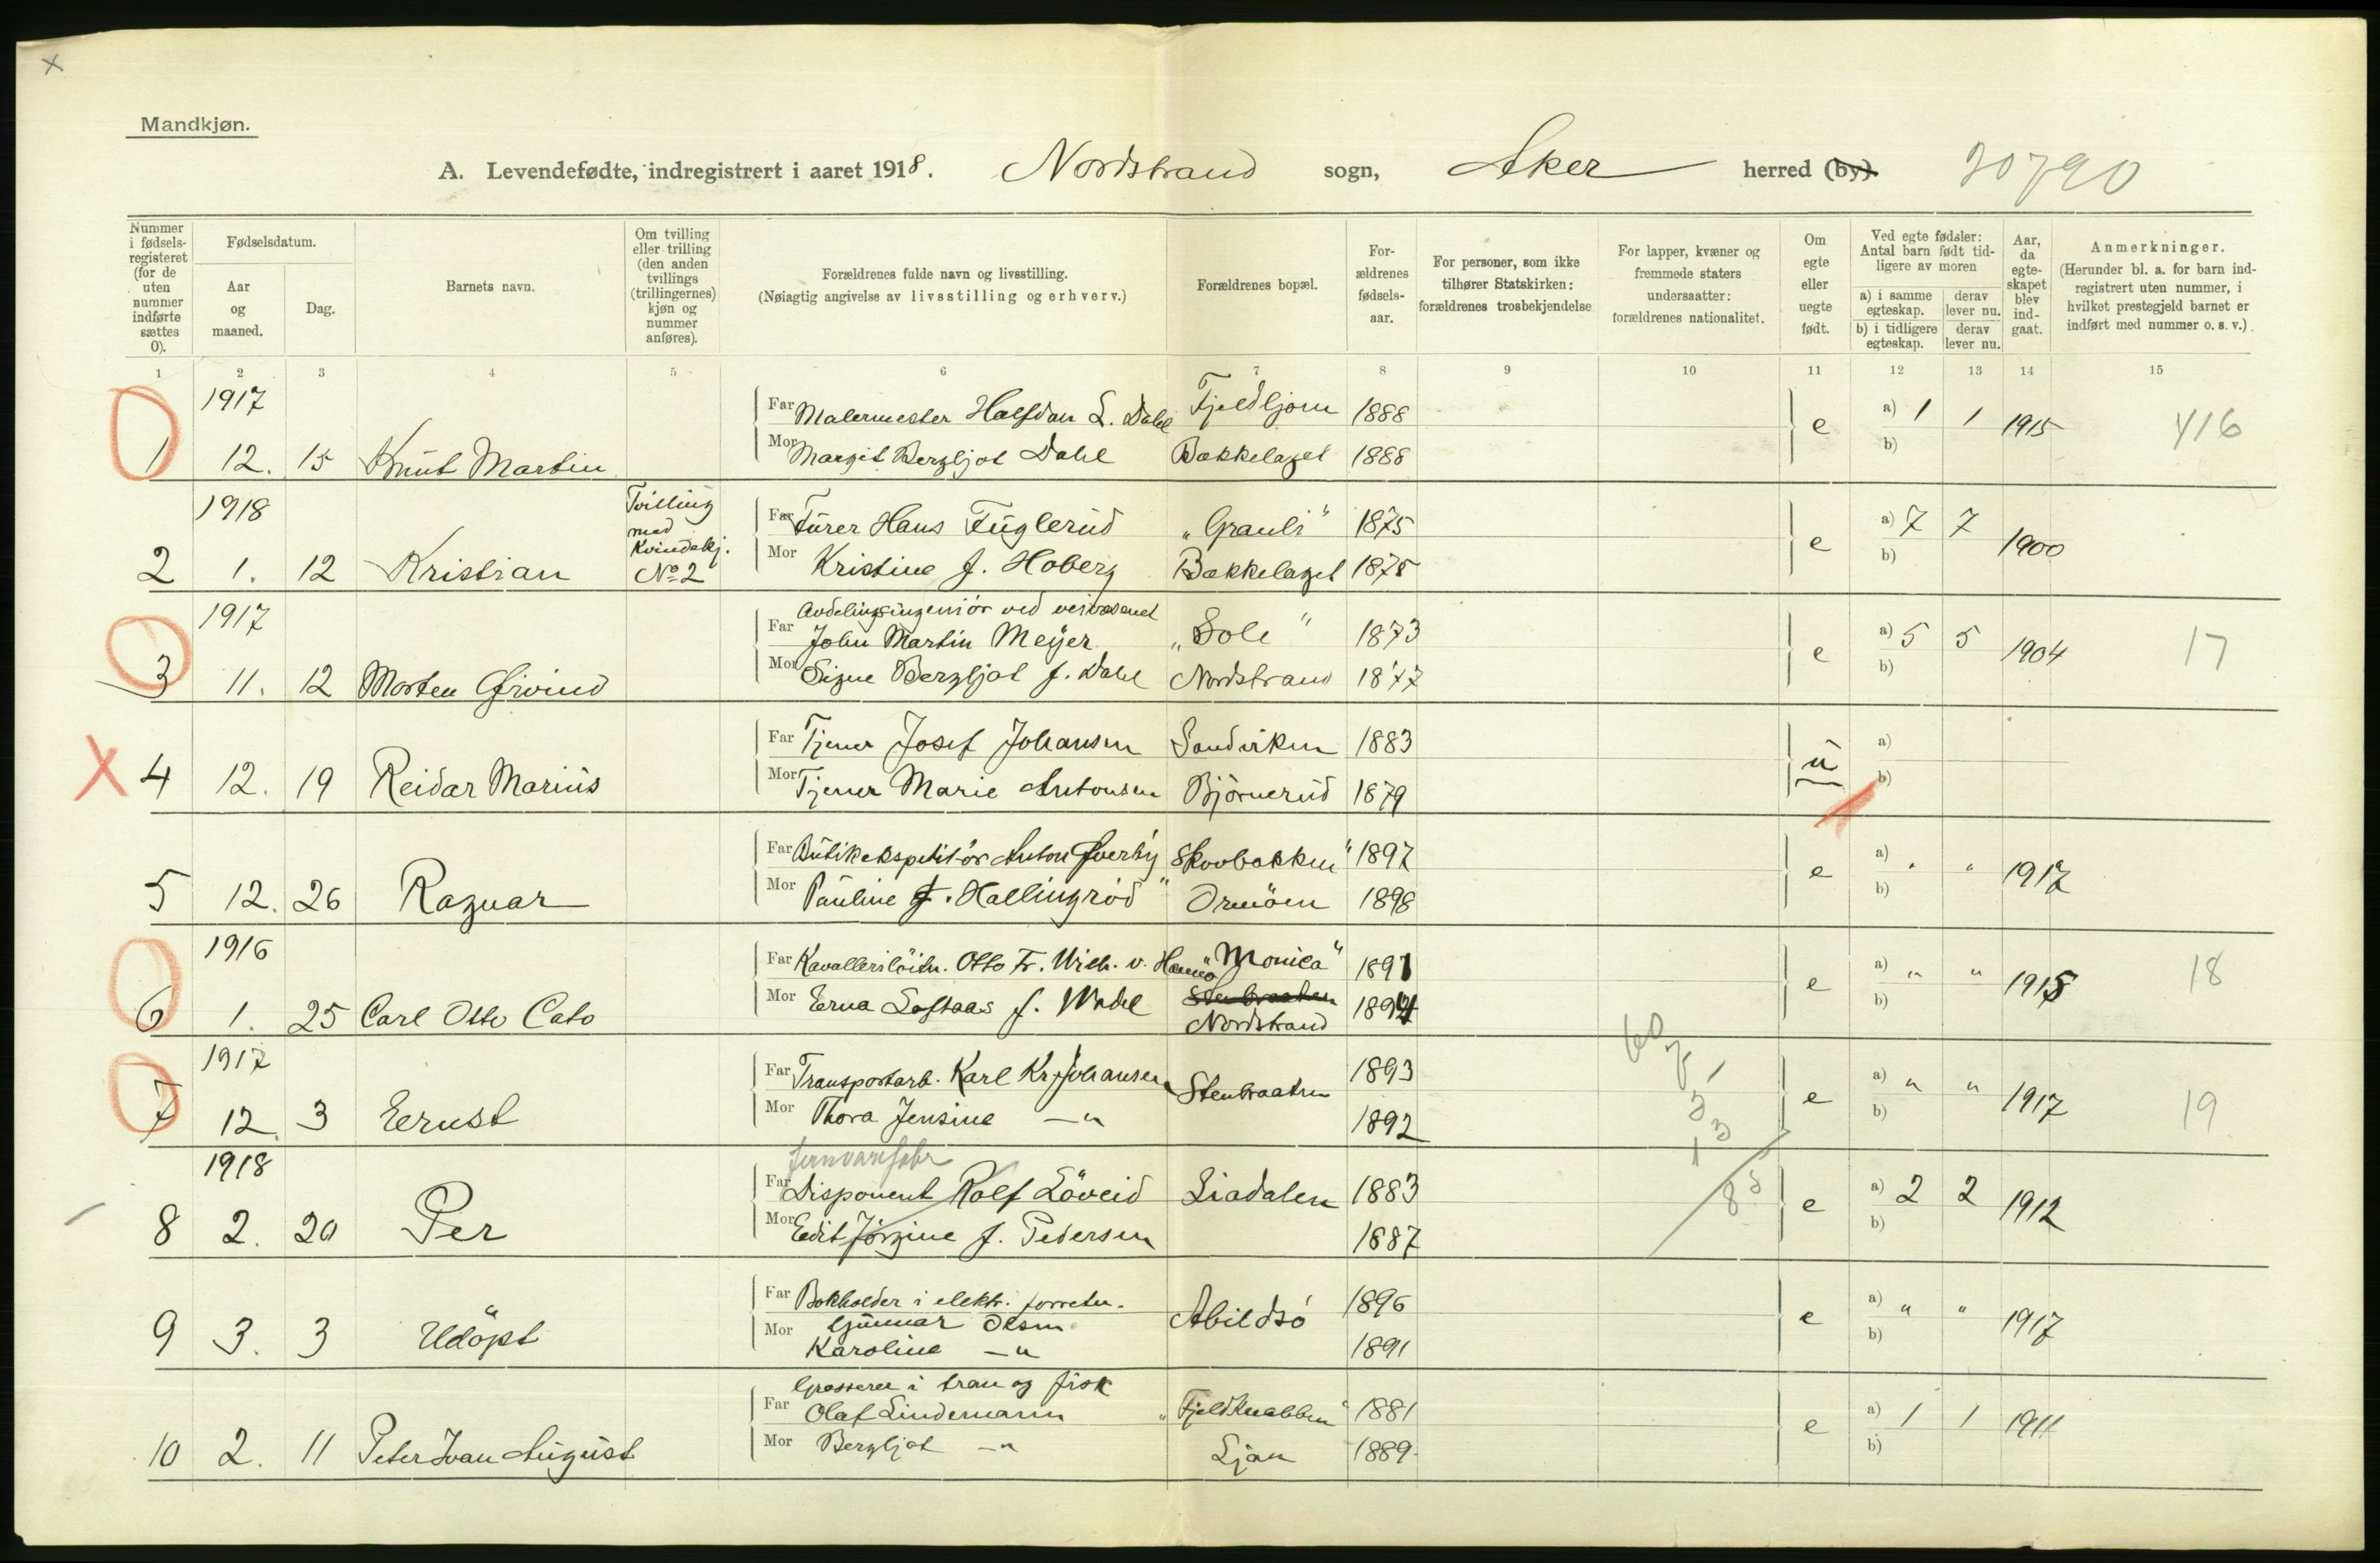 Mandkjøn.
A. Levendefødte, indregistrert i aaret 1918. Nordstrand sogn, Aker herred (by). 20790
Nummer i fødsels-registeret (for de uten nummer indførte sættes 0).
Fødselsdatum.
Aar og maaned.
Dag.
Barnets navn.
Om tvilling eller trilling (den anden tvillings (trillingernes) kjøn og nummer anføres).
Forældrenes fulde navn og livsstilling.
(Nøiagtig angivelse av livsstilling og erhverv.)
Forældrenes bopæl.
For-ældrenes fødsels-aar.
For personer, som ikke tilhører Statskirken: forældrenes trosbekjendelse
For lapper, kvæner og fremmede staters undersaatter: forældrenes nationalitet.
Om egte eller uegte født.
Ved egte fødsler: Antal barn født tid-ligere av moren
a) i samme egteskap. derav lever nu.
b) i tidligere egteskap. derav lever nu.
Aar, da egte-skapet blev ind-gaat.
Anmerkninger.
(Herunder bl. a. for barn ind-registrert uten nummer, i hvilket prestegjeld barnet er indført med nummer o. s. v.)
1 2 3 4 5 6 7 8 9 10 11 12 13 14 15
1917 Far Malermester Halfdan L. Dahl Fjeldljom 1888
e a) 1 1 1915 416
1 12. 15 Knut Martin Mor Margit Bergljot Dahl Bækkelaget 1888 b)
1918 Tvilling med Kvindekj. No 2 Far Furer Hans Fuglerud "Grauli" 1875
e a) 7 7 1900
2 1. 12 Kristian Mor Kristine f. Hoberg Bækkelaget 1875 b)
1917 Avdelingsingeniör ved veivæsenet
Far John Martin Meyer "Sole" 1873
e a) 5 5 1904 17
3 11. 12 Morten Øivind Mor Signe Bergljot f. Dahl Nordstrand 1877 b)
Far Tjener Josef Johansen Sandviken 1883
u a)
X 4 12. 19 Reidar Marius Mor Tjener Marie Antonsen Björnerud 1879 b)
Far Butikekspeditör Anton Øverby "Skovbakken" 1897
e a) " " 1917
5 12. 26 Ragnar Mor Pauline f. Hallingrød Ormöen 1898 b)
1916 Far Kavalleriløitn. Otto Fr. Wilh. v. Hanno "Monica" 1891
e a) " " 1915 18
6 1. 25 Carl Otto Cato Mor Erna Loftaas f. Wahl Stenbraaten Nordstrand 1894 b)
1917 Far Transportarb. Karl Kr. Johansen Stenbraaten 1893
e a) " " 1917 19
7 12. 3 Ernst Mor Thora Jensine —"— 1892 b)
1918 Far Disponent Rolf Löveid Liadalen 1883
e a) 2 2 1912
8 2. 20 Per Mor Edit Jörgine f. Pedersen 1887 b)
Far Bokholder i elektr. forretn. Gunnar Olsen Abildsö 1896
e a) " " 1917
9 3. 3 Udöpt Mor Karoline —"— 1891 b)
Grosserer i tran og fisk
Far Olaf Lindemann "Fjeldknabben" 1881
e a) 1 1 1911
10 2. 11 Peter Ivan August Mor Bergljot —"— Ljan 1889 b)